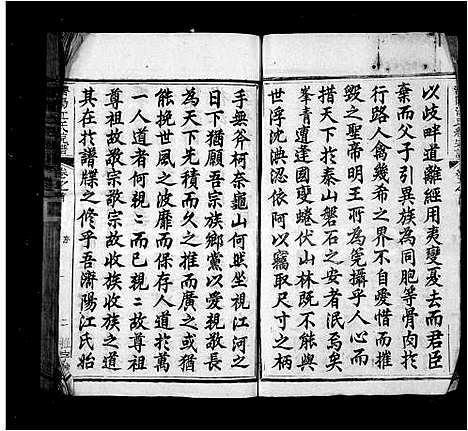 以歧畔道離經用夷變夏去而君臣
棄而父子引異族為同胞等骨肉於
行路人禽幾希之界不自愛惜而摧
毀之聖帝明王所為範攝乎人心
措天下於泰山磐石之安者泯焉矣
峯青遭國變蜷伏山林既不能與
世俘沈淟涊依阿以竊取尺寸之柄
手無斧柯奈龜山何然坐視江河之
日下猶願吾宗族鄉黨以愛親敬長
為天下先積而久之推而廣之或猶
能挽世風之歧靡而保存人道於萬
一人道者何親二而已親二故尊祖
尊祖故敬宗敬宗故收族收族之道
其在於譜牒之修乎吾濟陽江氏始
濟陽江氏宗譜 卷之首